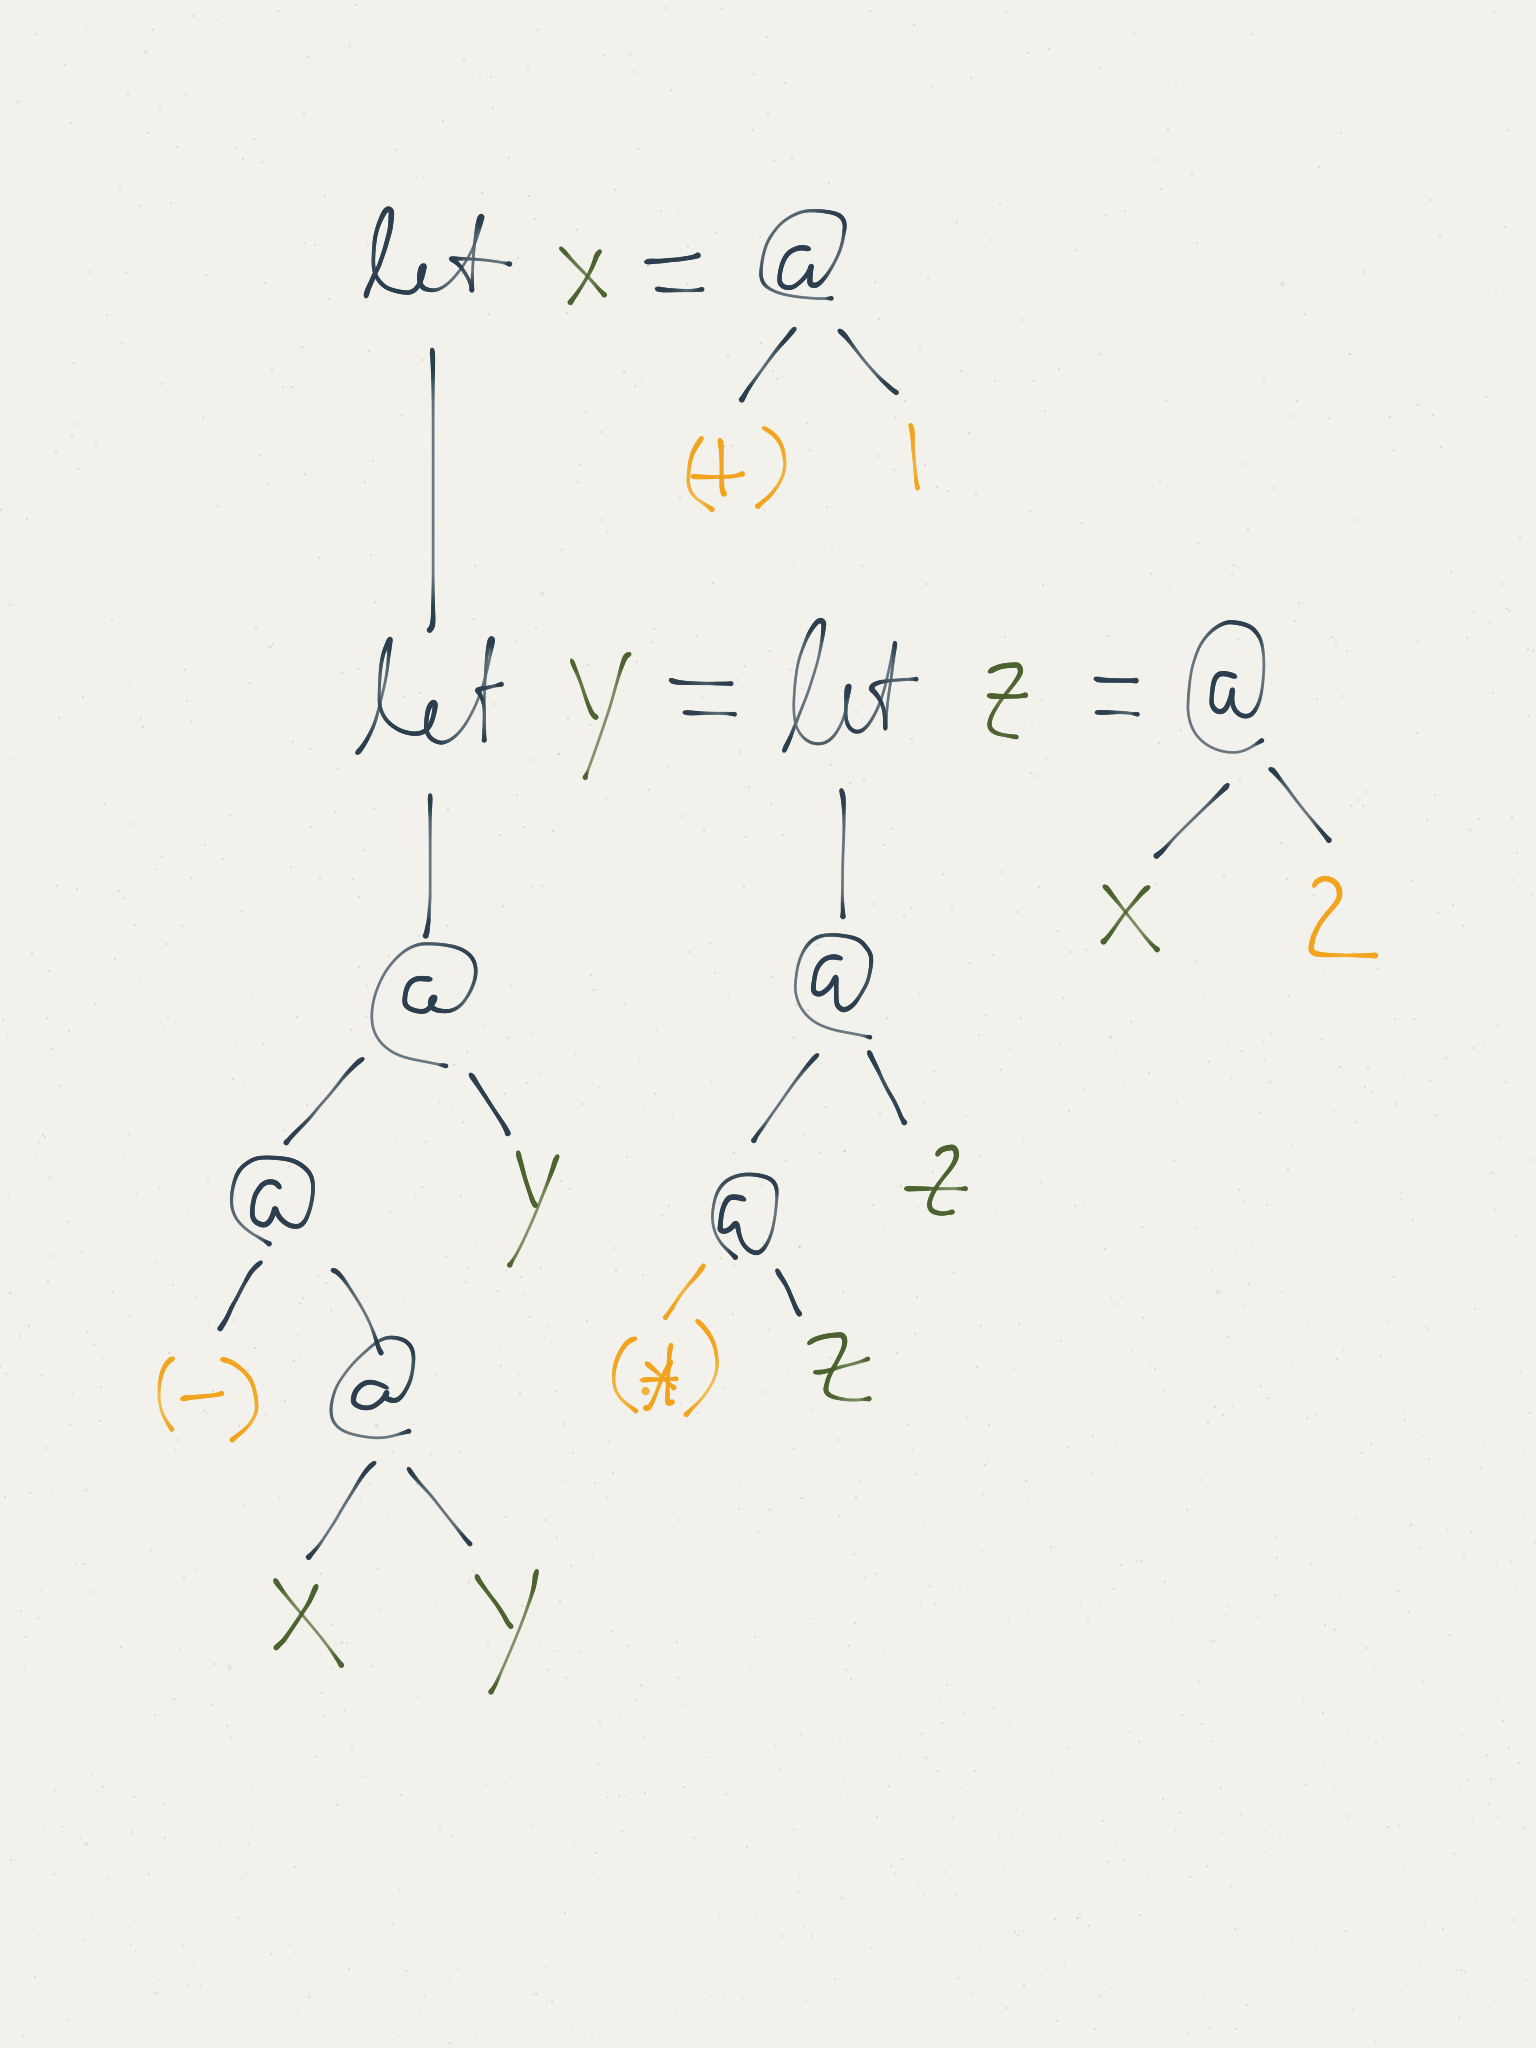 let x = @
(+) 1
let y = let z = @
x 2
@ @
y z
@ @
(-) @ (*) z
x y